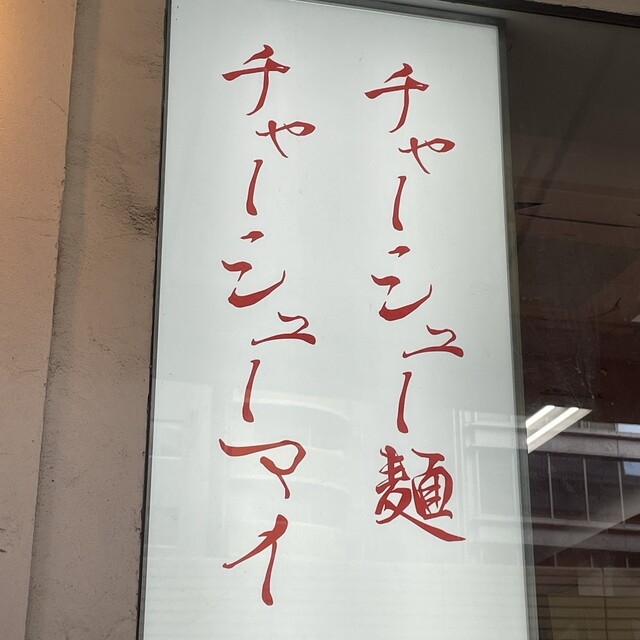 チャーシュー麺
チャーシューマイ